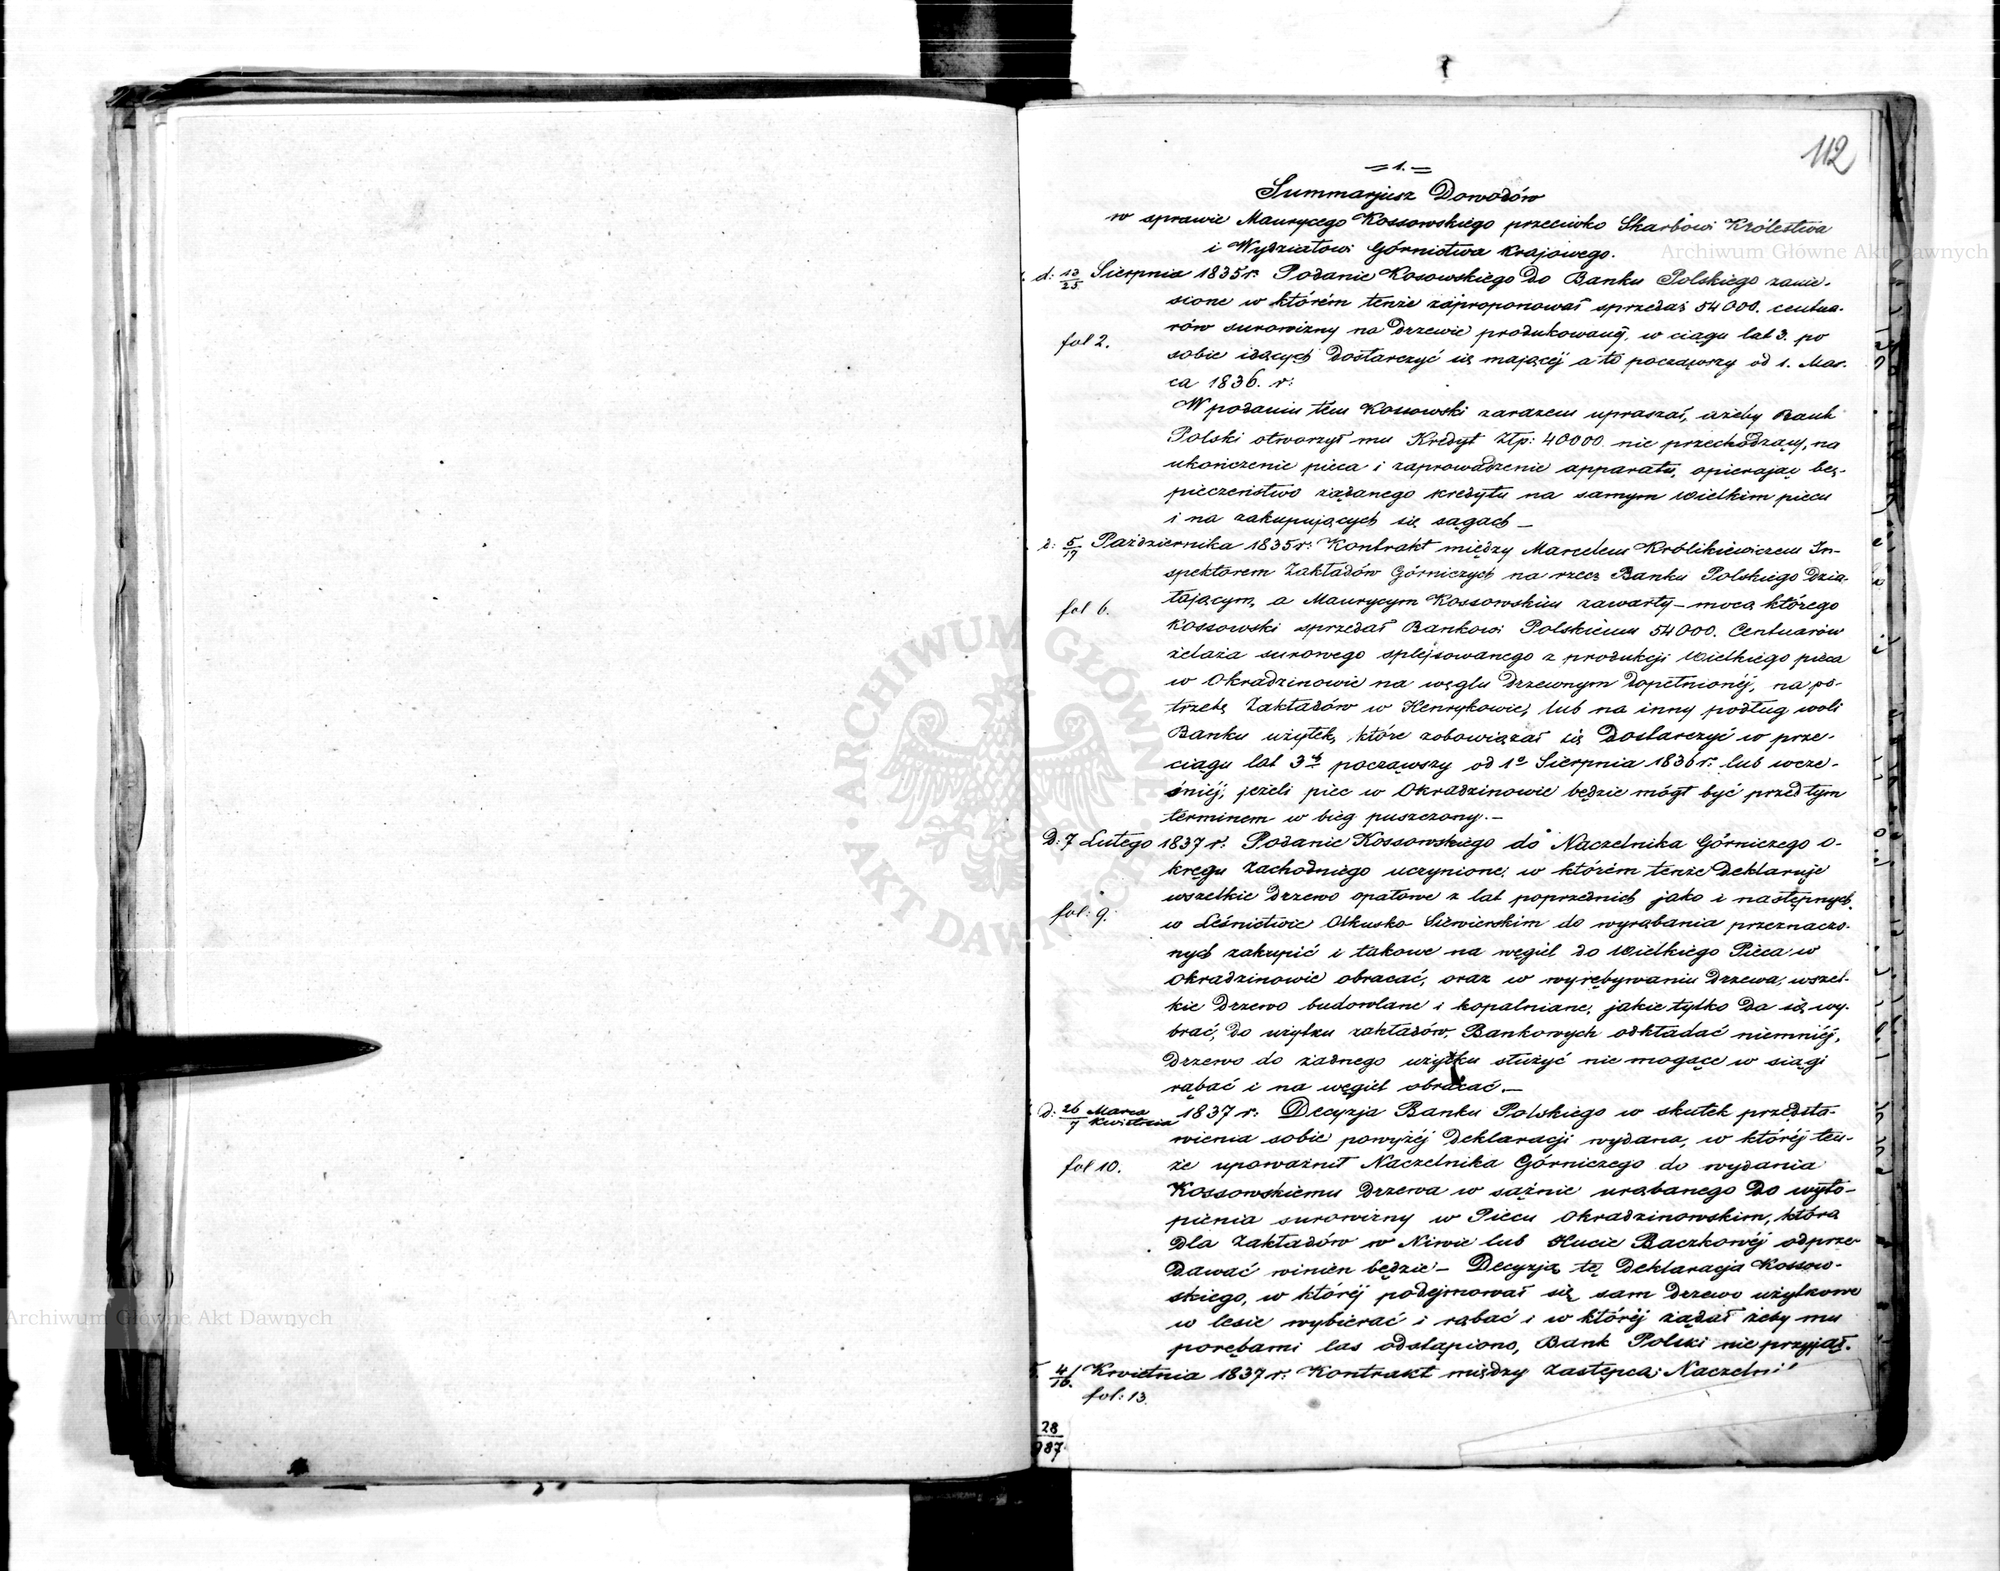 112
=1.=
Summarjusz Dowodów
w sprawie Maurycego Kossowskiego przeciwko Skarbowi Królestwa
i Wydziałowi Górnictwa Krajowego.
d: 13/25 Sierpnia 1835 r: Podanie Kosowskiego do Banku Polskiego zanie-
sione w którém tenże zaproponował sprzedaż 54000. centna-
rów surowizny na drzewie produkowanéj, w ciągu lat 3. po
fol 2.
sobie idących dostarczyć się mającéj a to począwszy od 1. Mar-
ca 1836. r:
W podaniu tem Kossowski zarazem upraszał, ażeby Bank
Polski otworzył mu Kredyt Złp: 40000. nie przechodzący, na
ukończenie pieca i zaprowadzenie apparatu, opierając bes-
pieczeństwo żądanego kredytu na samym wielkim piecu
i na zakupujących się sągach —
d: 5/17 Października 1835 r: Kontrakt między Marcelem Królikiewiczem In-
spektorem Zakładów Górniczych na rzecz Banku Polskiego dzia-
łającym, a Maurycym Kossowskim zawarty — mocą którego
fol 6.
Kossowski sprzedał Bankowi Polskiemu 54000. Centnarów
żelaza surowego splejsowanego z produkcji Wielkiego pieca
w Okradzinowie na węglu drzewnym dopełnionéj, na po-
trzebę Zakładów w Henrykowie, lub na inny podług woli
Banku użytek, które zobowiązał się dostarczyć w prze-
ciągu lat 3ch począwszy od 1o Sierpnia 1836 r: lub wcze-
śniéj, jeżeli piec w Okradzinowie będzie mógł być przed tym
terminem w bieg puszczony. —
D: 7 Lutego 1837 r: Podanie Kossowskiego do Naczelnika Górniczego o-
kręgu Zachodniego uczynione, w którém tenże deklaruje
wszelkie drzewo opałowe z lat poprzednich jako i następnych
fol: 9.
w Leśnictwie Olkusko-Siewierskim do wyrąbania przeznaczo-
nych zakupić i takowe na węgiel do Wielkiego Pieca w
Okradzinowie obracać, oraz w wyrębywaniu drzewa, wszel-
kie drzewo budowlane i kopalniane, jakie tylko da się wy-
brać, do użytku zakładów Bankowych odkładać niemniéj,
drzewo do żadnego użytku służyć nie mogące w siągi
rąbać i na węgiel obracać. —
d: 26/7 Marca/Kwietnia 1837 r: Decyzja Banku Polskiego w skutek przedsta-
wienia sobie powyżéj deklaracji wydana, w któréj ten-
że upoważnił Naczelnika Górniczego do wydania
fol 10.
Kossowskiemu drzewa w sążnie urąbanego do wyto-
pienia surowizny w Piecu Okradzinowskim, którą
dla Zakładów w Niwie lub Hucie Baczkowéj odprze-
dawać winien będzie — Decyzją tę deklaracja Kossow-
skiego, w któréj podejmował się sam drzewo użytkowe
w lesie wybierać i rąbać i w któréj żądał żeby mu
porębami las odstąpiono, Bank Polski nie przyjął.
4/16. Kwietnia 1837 r: Kontrakt między Zastępcą Naczelni-
fol: 13.
28
987
Archiwum Główne Akt Dawnych
Archiwum Główne Akt Dawnych
ARCHIWUM GŁÓWNE AKT DAWNYCH